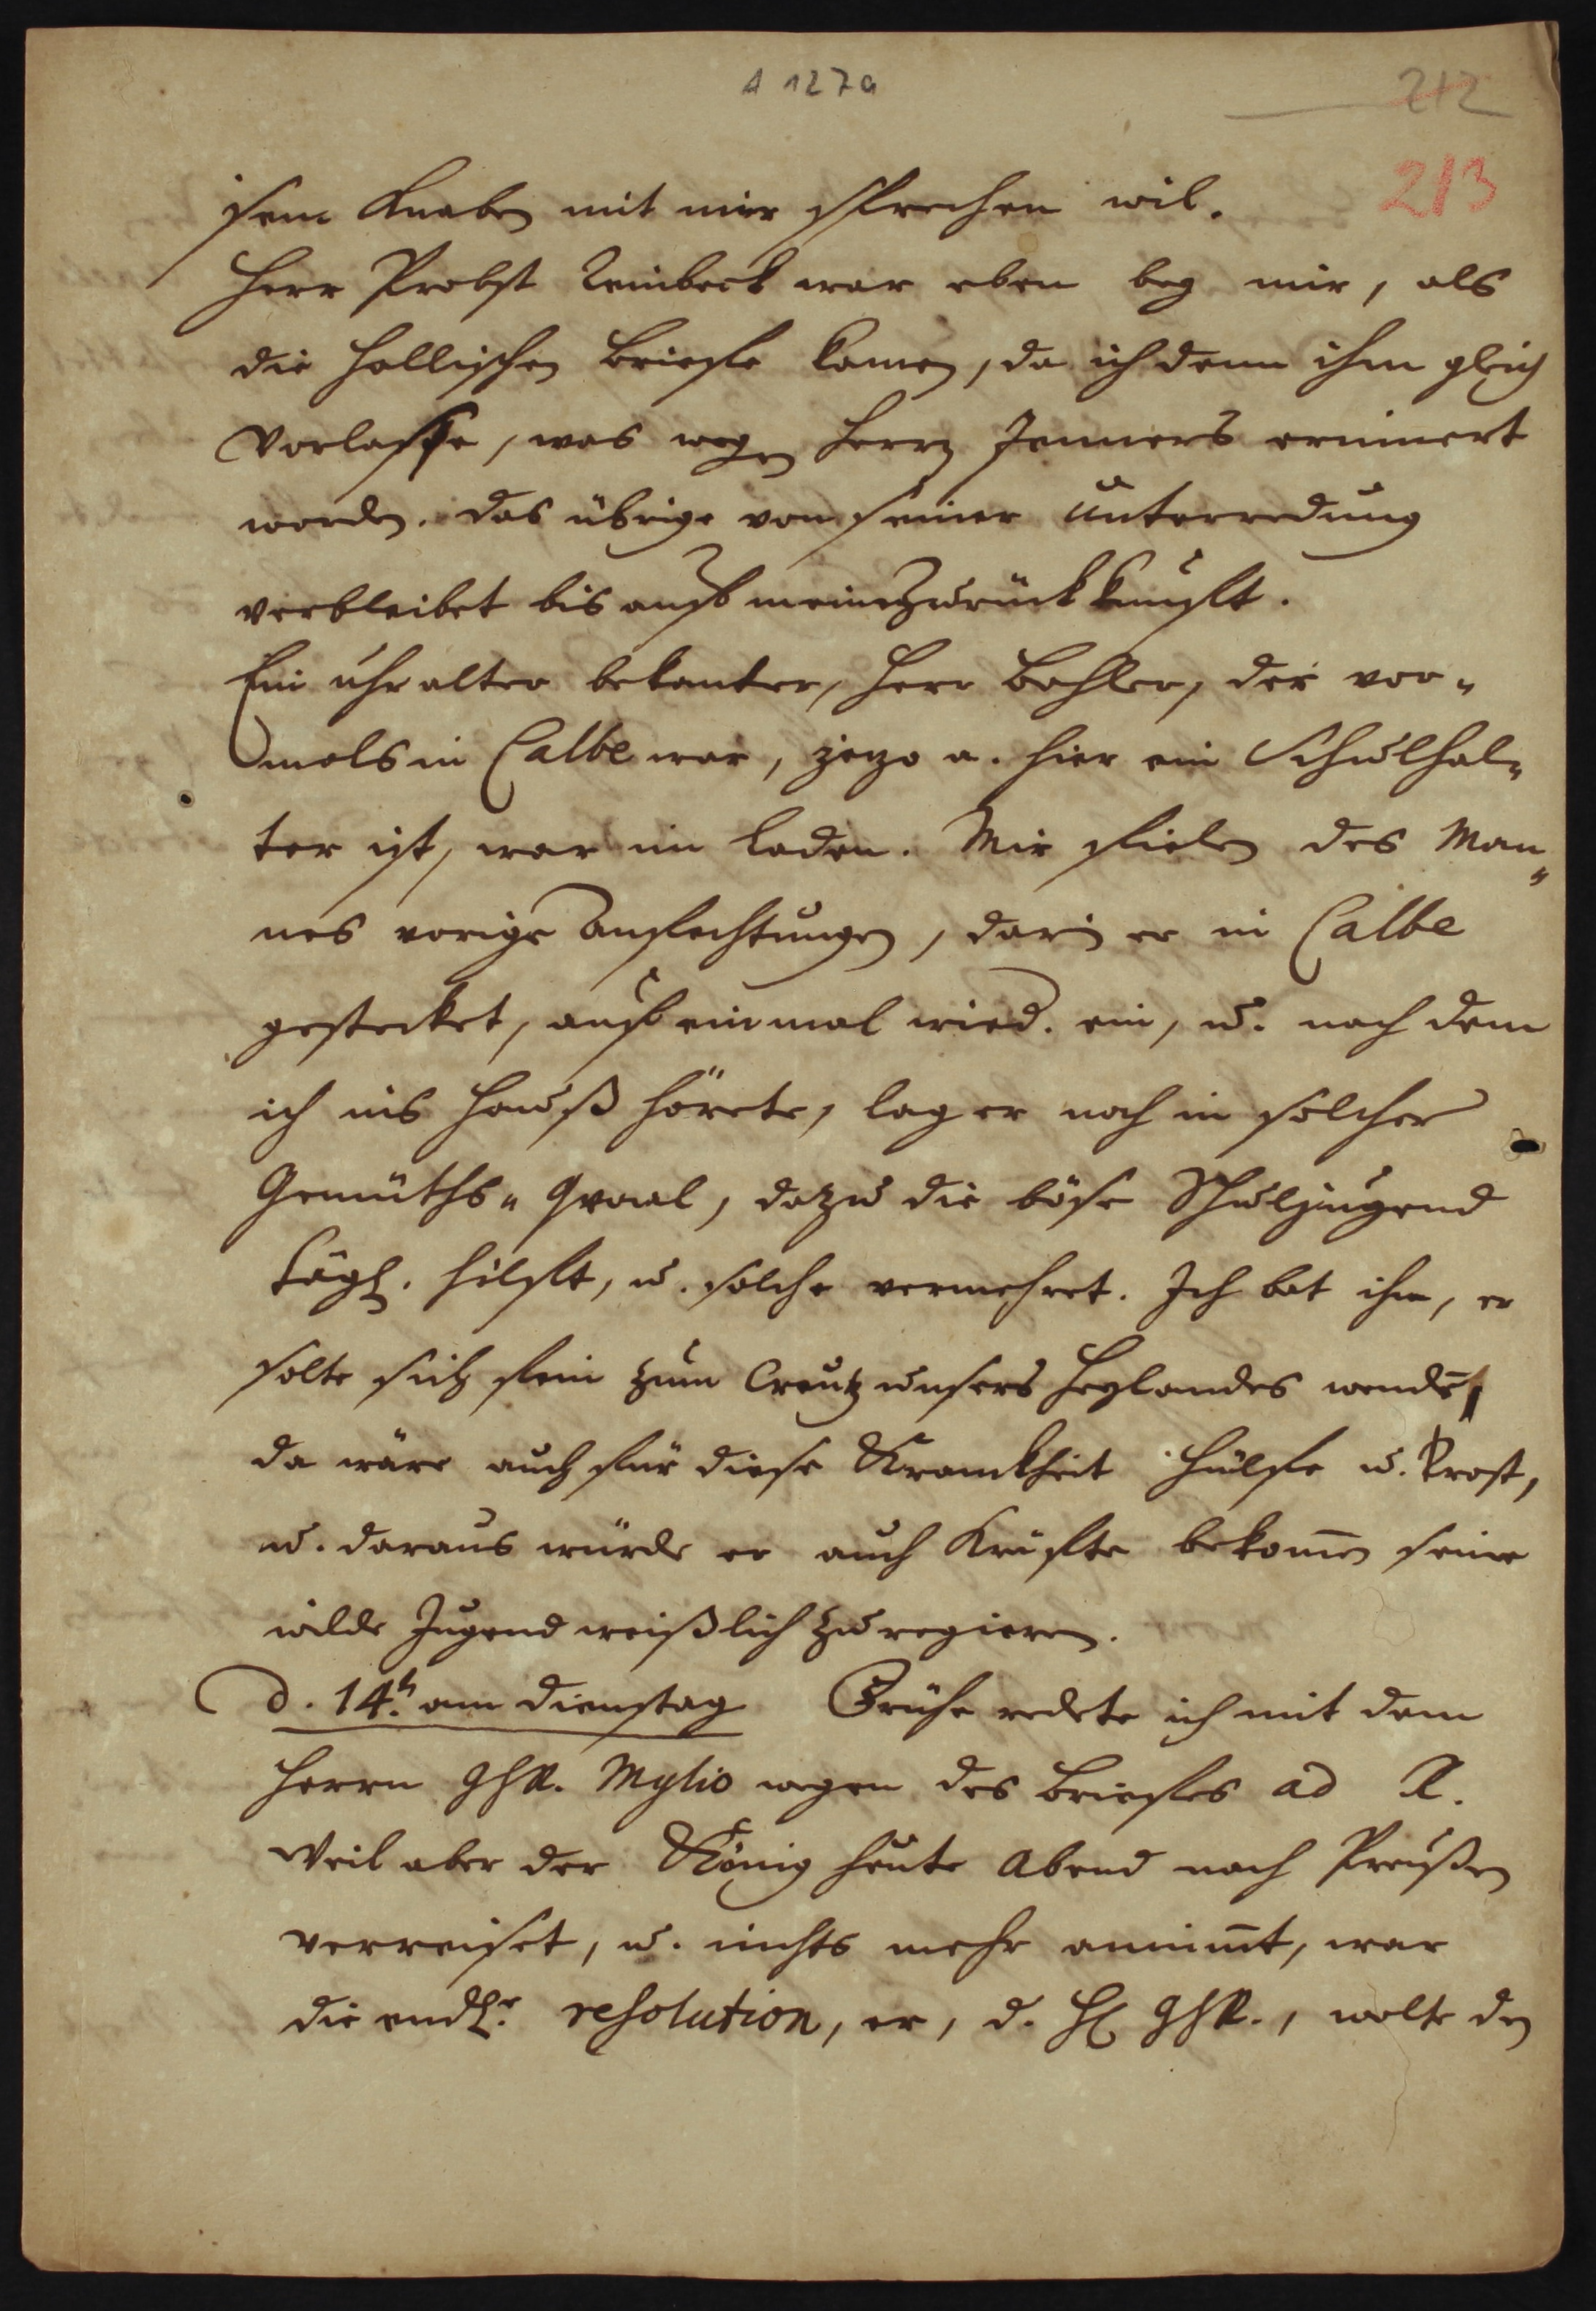 A 127a
212
213
sem Knaben mit mir sprechen wil.
Herr Probst Reinbeck war eben bey mir, als
die Hallischen Briefe kamen, da ich denn ihm gleich
Vorlase, was wegen Herrn Jenners erinnert
worden. Das übrige von seiner Unterredung
verbleibet bis auf meine Zurückkunfft.
Ein uhralter bekanter, Herr Bohler, der vor-
mals in Calbe war, jezo a. hier ein Schulhal-
ter ist, war im Laden. Mir fielen des Man-
nes vorige Anfechtungen, darin er in Calbe
gestecket, auf einmal wied. ein, u. nach dem
ich ins Hauß hörete, lag er noch in solcher
Gemüths- Qvaal, dazu die böse Schuljugend
tägl. hilfft, u. solche vermehret. Ich bat ihn, er
solte sich fein zum Creutz unsers Heylandes wenden,
da wäre auch für diese Kranckheit Hülfe u. Trost,
u. daraus würde er auch Kräffte bekom̅en seine
wilde Jugend weißlich zu regieren.
d. 14h. am Dienstag Frühe redete ich mit dem
Herrn GhR. Mylio wegen des Briefes ad R.
Weil aber der König heute Abend nach Preußen
verreiset, u. nichts mehr annim̅t, war
die endl. resolution, er, d. H GhR., wolte den